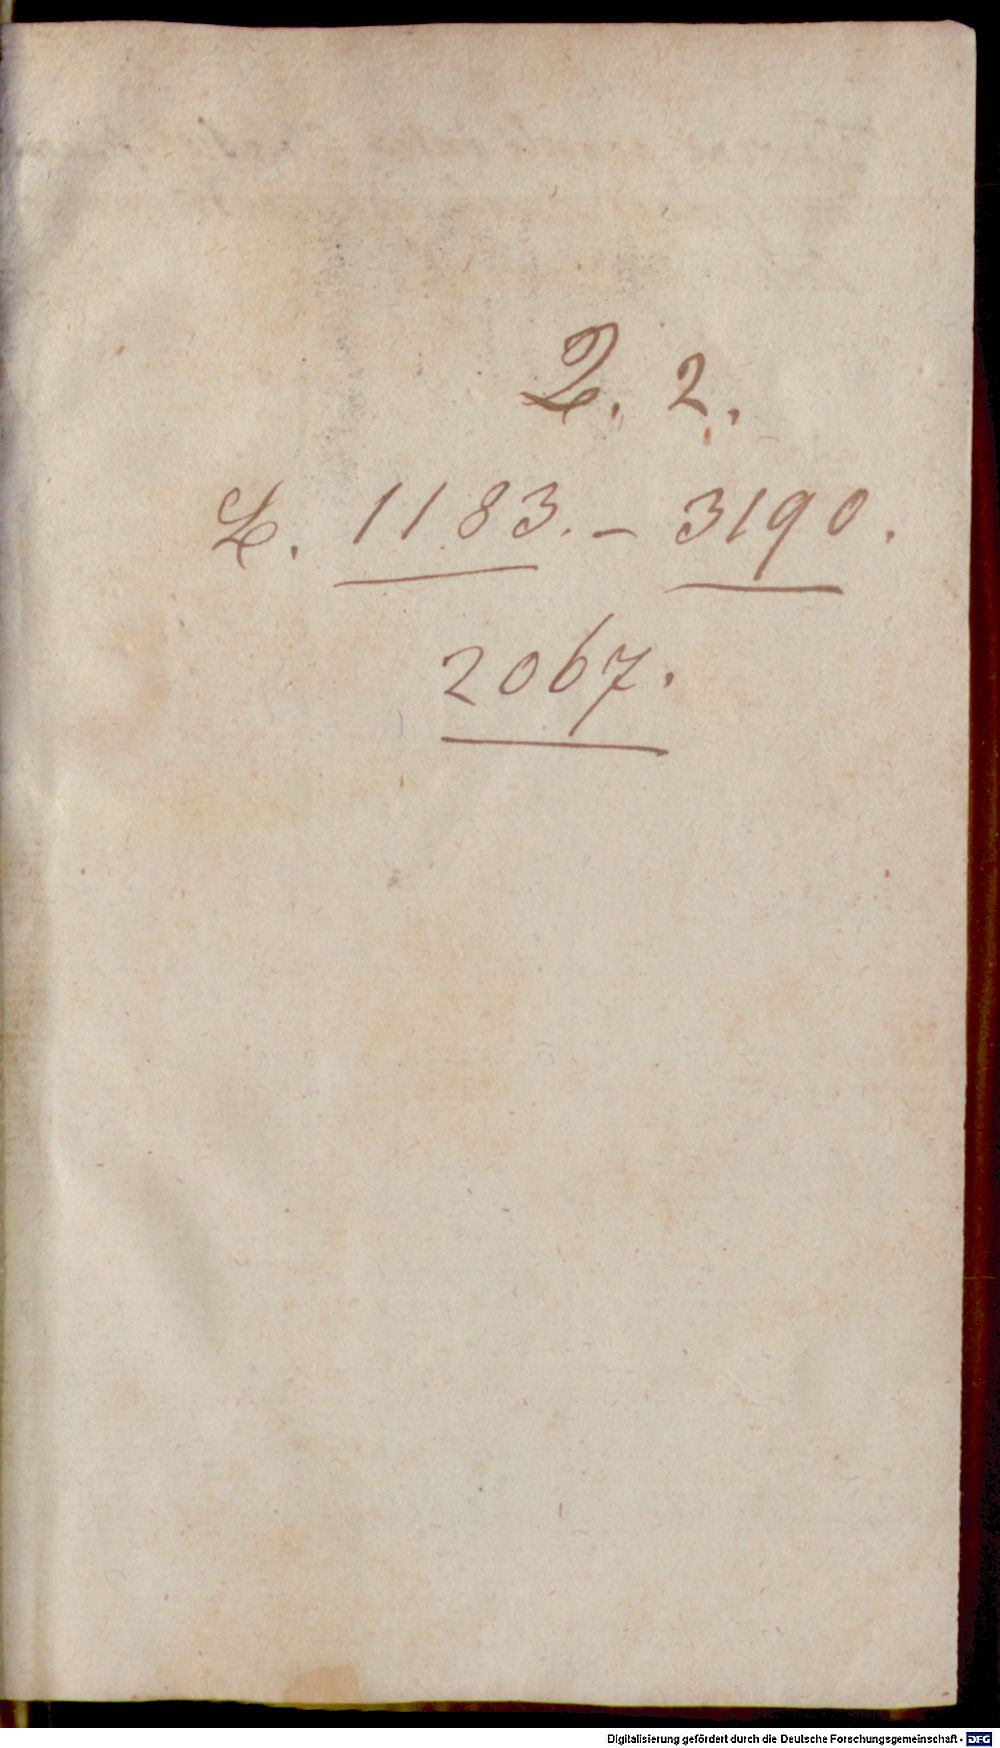 Q. 2.
L. 1183. – 3190.
2067.
Digitalisierung gefördert durch die Deutsche Forschungsgemeinschaft - DFG